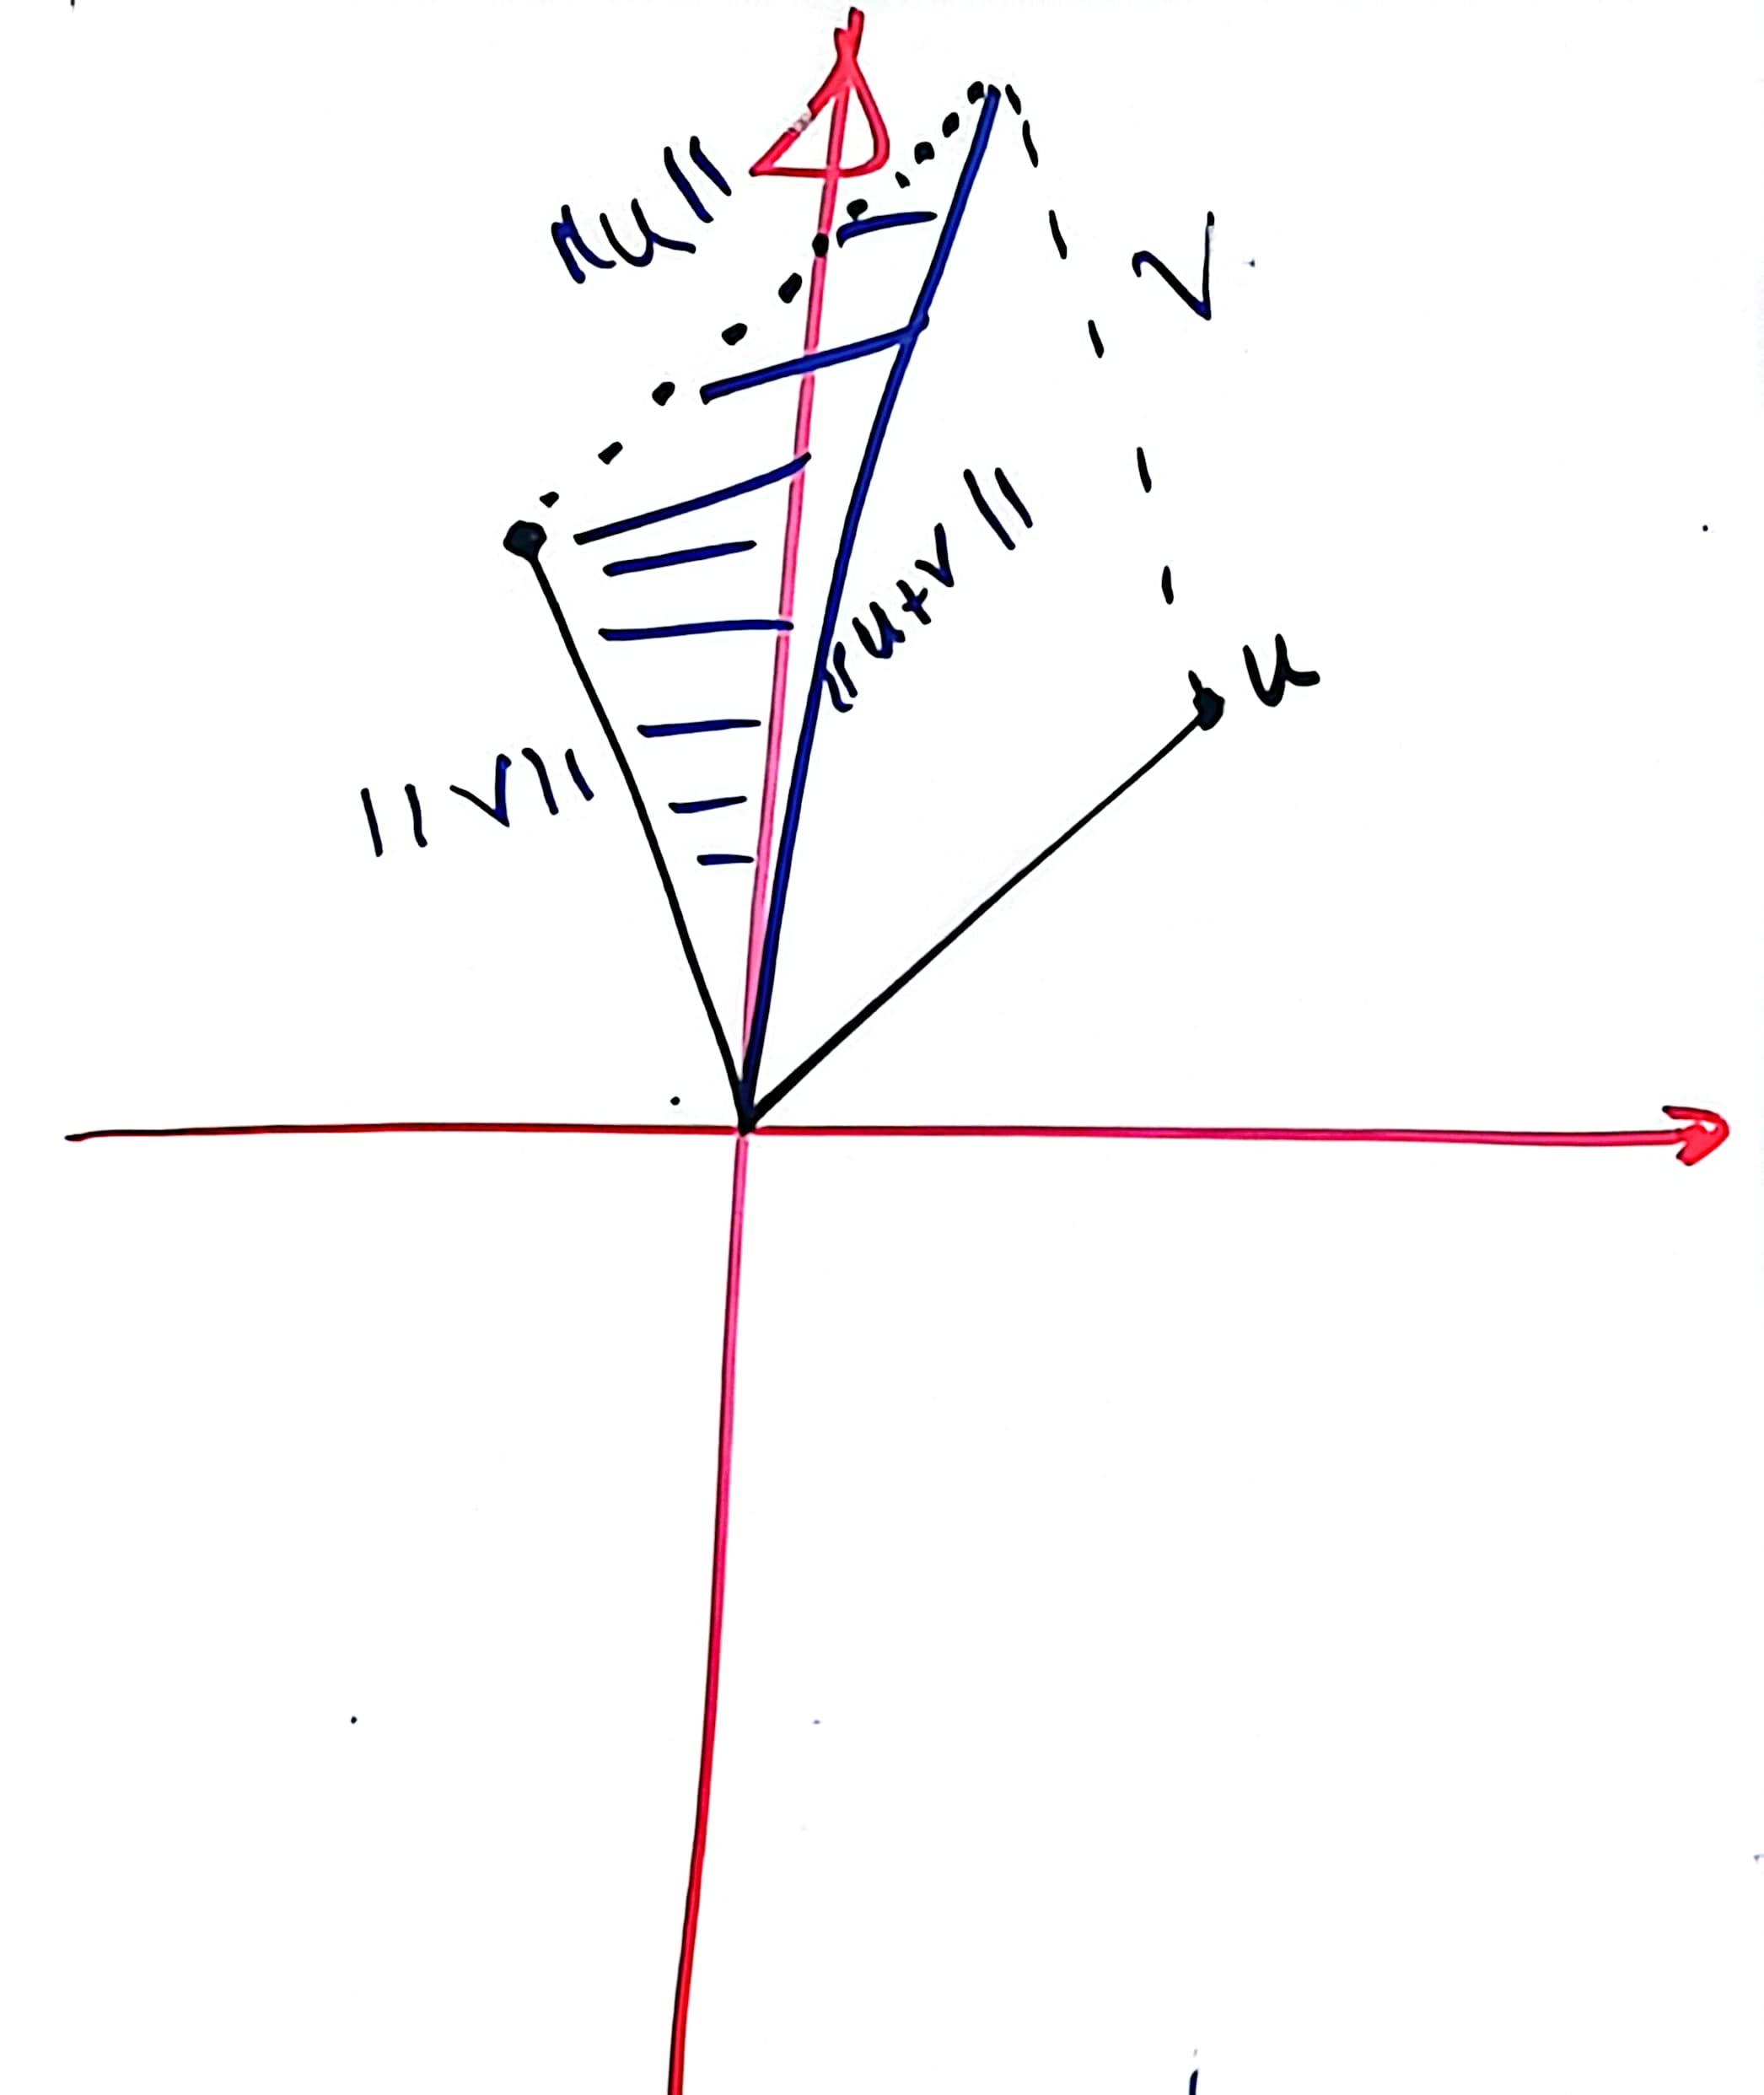 ||u||
V
||u+v||
u
||v||